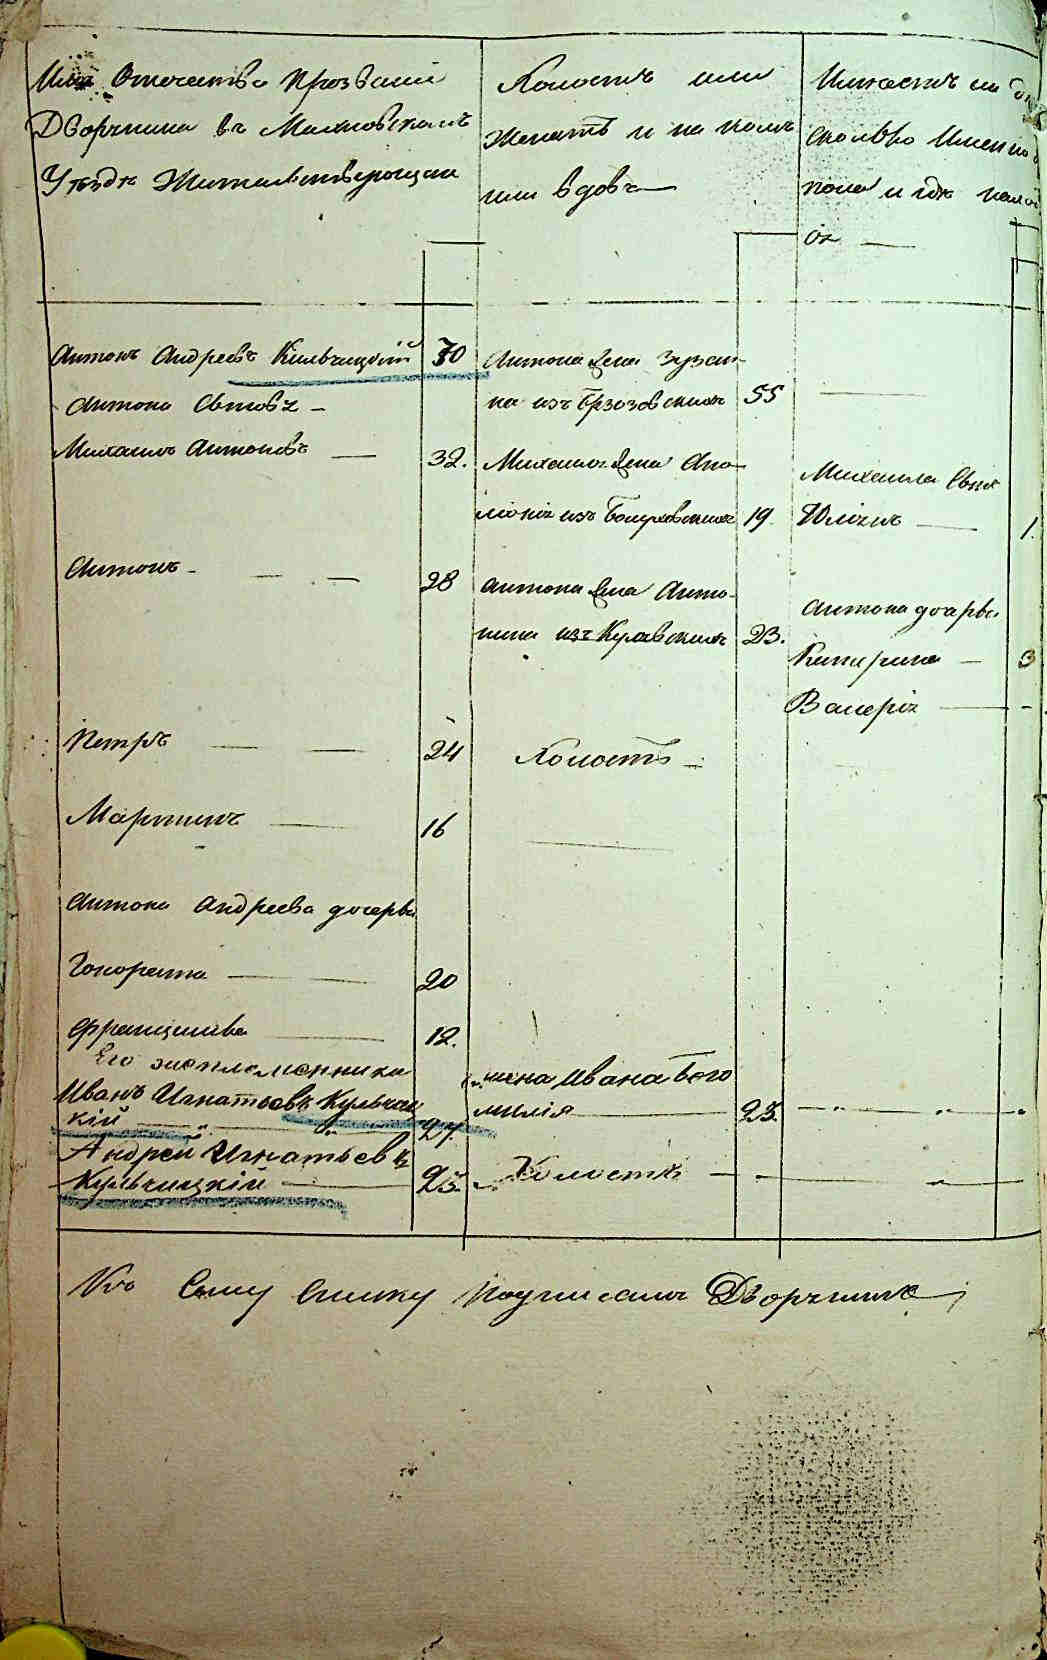 Имя Отечество Прозвание
Дворянина въ Махновскомъ
Уездѣ Жительствующаго
Холостъ или
Женатъ и на комъ
или вдовъ
Имѣетъ ли
сколько Именно
пола и гдѣ
Антонъ Андреевъ Кульчицкій 70
Антона Жена Зузан-
на изъ Бржозовскихъ 55
Антона Сыновья
Михаилъ Антоновъ 32.
Михаила Жена Апо-
лонія изъ 19
Михаила Сынъ
Юліанъ 1.
Антонъ 28
Антона Жена Анто-
нина изъ 23.
Антона дочери
Катерина 3
Валерія
Петръ 24
Холостъ
Мартинъ 16
Антона Андреева дочери
Гонората 20
Францишка 12.
Его племянники
Иванъ Игнатьевъ Кульчиц
кій 27.
жена Ивана Емилія 23.
Андрей Игнатьевъ
Кульчицкій 25.
Холостъ
Къ Сему Списку Подписалъ Дворянинъ